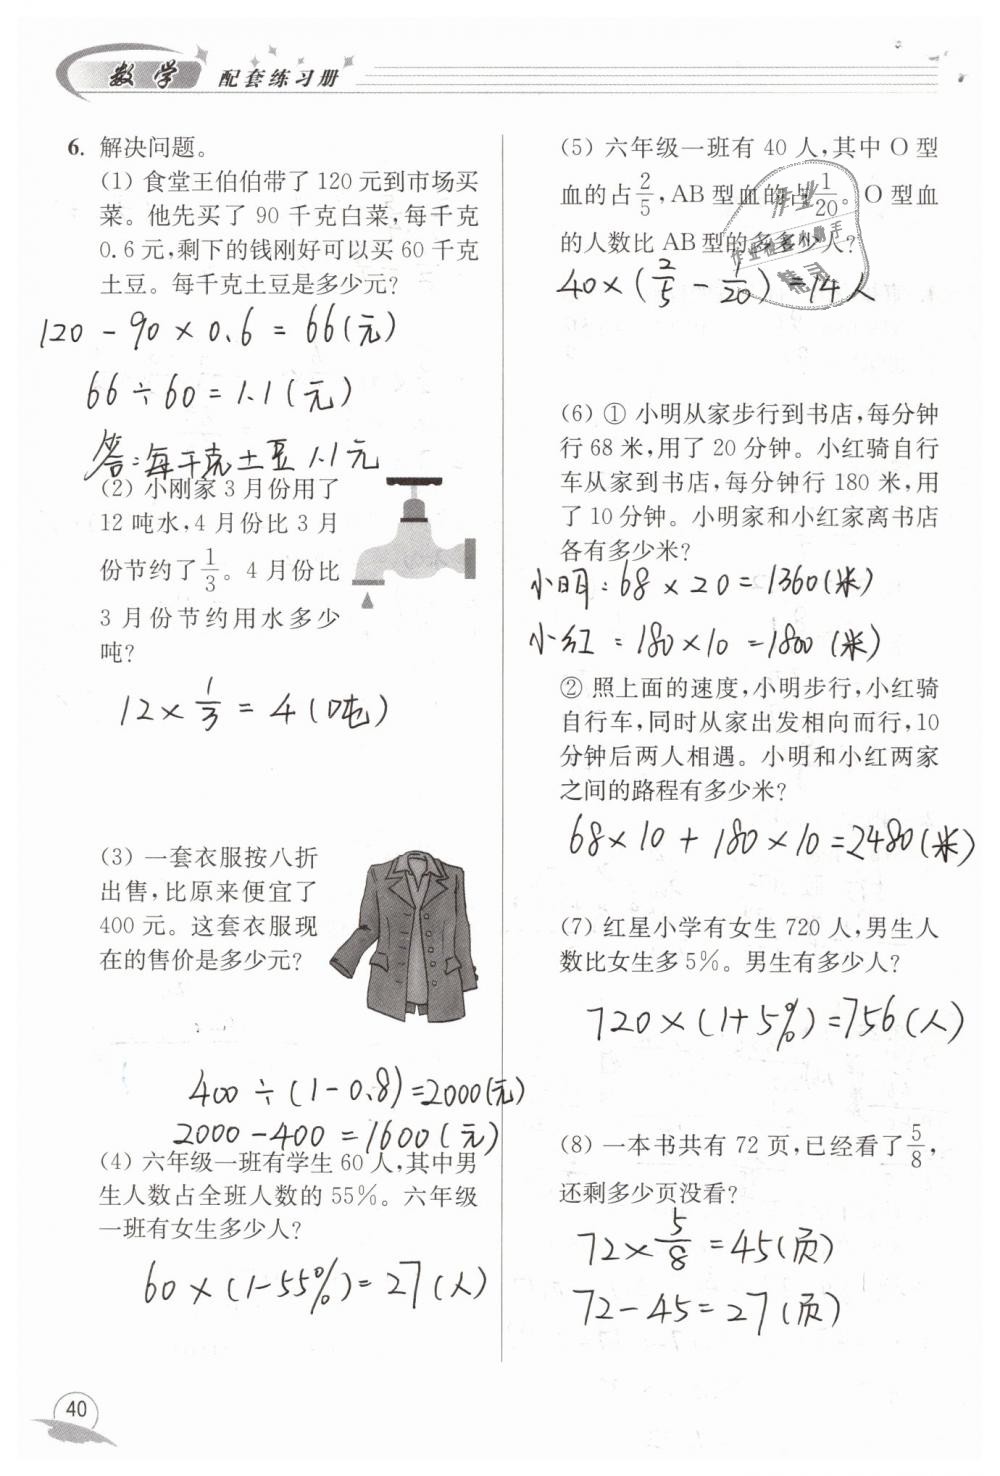 数学 配套练习册
6. 解决问题。
(1) 食堂王伯伯带了 120 元到市场买
菜。他先买了 90 千克白菜,每千克
0.6 元,剩下的钱刚好可以买 60 千克
土豆。每千克土豆是多少元?
120 - 90 × 0.6 = 66(元)
66 ÷ 60 = 1.1 (元)
答:每千克土豆 1.1元
(2) 小刚家 3 月份用了
12 吨水,4 月份比 3 月
份节约了 1/3。4 月份比
3 月份节约用水多少
吨?
12 × 1/3 = 4 (吨)
(3) 一套衣服按八折
出售,比原来便宜了
400 元。这套衣服现
在的售价是多少元?
400 ÷ (1-0.8)=2000(元)
2000-400 = 1600 (元)
(4) 六年级一班有学生 60 人,其中男
生人数占全班人数的 55%。六年级
一班有女生多少人?
60 × (1-55%)= 27 (人)
(5) 六年级一班有 40 人,其中 O 型
血的占 2/5,AB 型血的占 1/20。O 型血
的人数比 AB 型的多多少人?
40 × ( 2/5 - 1/20 ) = 14人
(6) ① 小明从家步行到书店,每分钟
行 68 米,用了 20 分钟。小红骑自行
车从家到书店,每分钟行 180 米,用
了 10 分钟。小明家和小红家离书店
各有多少米?
小明:68 × 20 = 1360(米)
小红:180×10 =1800 (米)
② 照上面的速度,小明步行,小红骑
自行车,同时从家出发相向而行,10
分钟后两人相遇。小明和小红两家
之间的路程有多少米?
68×10 + 180×10=2480(米)
(7) 红星小学有女生 720 人,男生人
数比女生多 5%。男生有多少人?
720×(1+5%)=756(人)
(8) 一本书共有 72 页,已经看了 5/8,
还剩多少页没看?
72× 5/8 =45(页)
72-45= 27(页)
40